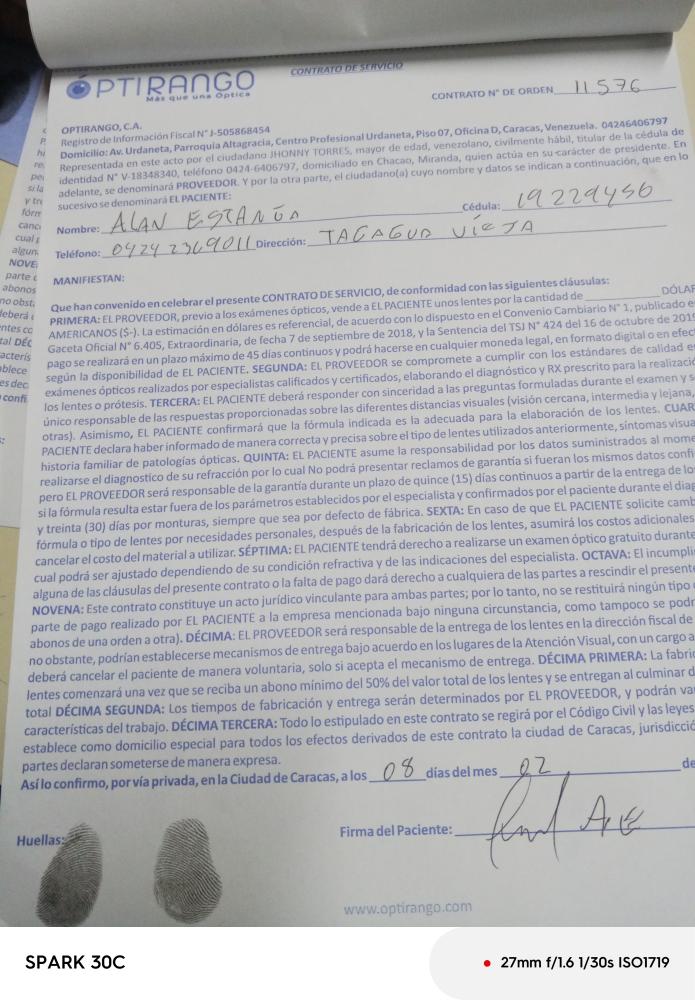 CONTRATO DE SERVICIO
ÓPTIRANGO
Más que una Óptica
CONTRATO N° DE ORDEN 11576
OPTIRANGO, C.A.
Registro de Información Fiscal N° J-505868454
Domicilio: Av. Urdaneta, Parroquia Altagracia, Centro Profesional Urdaneta, Piso 07, Oficina D, Caracas, Venezuela. 04246406797
Representada en este acto por el ciudadano JHONNY TORRES, mayor de edad, venezolano, civilmente hábil, titular de la cédula de
identidad N° V-18348340, teléfono 0424-6406797, domiciliado en Chacao, Miranda, quien actúa en su carácter de presidente. En
adelante, se denominará PROVEEDOR. Y por la otra parte, el ciudadano(a) cuyo nombre y datos se indican a continuación, que en lo
sucesivo se denominará EL PACIENTE:
Nombre: ALAN Cédula: 19229456
Teléfono: 04242369011 Dirección: TACAGUA VIEJA
MANIFIESTAN:
Que han convenido en celebrar el presente CONTRATO DE SERVICIO, de conformidad con las siguientes cláusulas:
PRIMERA: EL PROVEEDOR, previo a los exámenes ópticos, vende a EL PACIENTE unos lentes por la cantidad de DÓLAR
AMERICANOS ($-). La estimación en dólares es referencial, de acuerdo con lo dispuesto en el Convenio Cambiario N° 1, publicado e
Gaceta Oficial N° 6.405, Extraordinaria, de fecha 7 de septiembre de 2018, y la Sentencia del TSJ N° 424 del 16 de octubre de 2019
pago se realizará en un plazo máximo de 45 días continuos y podrá hacerse en cualquier moneda legal, en formato digital o en efect
según la disponibilidad de EL PACIENTE. SEGUNDA: EL PROVEEDOR se compromete a cumplir con los estándares de calidad e
exámenes ópticos realizados por especialistas calificados y certificados, elaborando el diagnóstico y RX prescrito para la realizació
los lentes o prótesis. TERCERA: EL PACIENTE deberá responder con sinceridad a las preguntas formuladas durante el examen y s
único responsable de las respuestas proporcionadas sobre las diferentes distancias visuales (visión cercana, intermedia y lejana,
otras). Asimismo, EL PACIENTE confirmará que la fórmula indicada es la adecuada para la elaboración de los lentes. CUAR
PACIENTE declara haber informado de manera correcta y precisa sobre el tipo de lentes utilizados anteriormente, síntomas visua
historia familiar de patologías ópticas. QUINTA: EL PACIENTE asume la responsabilidad por los datos suministrados al mome
realizarse el diagnostico de su refracción por lo cual No podrá presentar reclamos de garantía si fueran los mismos datos confi
pero EL PROVEEDOR será responsable de la garantía durante un plazo de quince (15) días continuos a partir de la entrega de lo
si la fórmula resulta estar fuera de los parámetros establecidos por el especialista y confirmados por el paciente durante el diag
y treinta (30) días por monturas, siempre que sea por defecto de fábrica. SEXTA: En caso de que EL PACIENTE solicite camb
fórmula o tipo de lentes por necesidades personales, después de la fabricación de los lentes, asumirá los costos adicionales
cancelar el costo del material a utilizar. SÉPTIMA: EL PACIENTE tendrá derecho a realizarse un examen óptico gratuito durante
cual podrá ser ajustado dependiendo de su condición refractiva y de las indicaciones del especialista. OCTAVA: El incumpli
alguna de las cláusulas del presente contrato o la falta de pago dará derecho a cualquiera de las partes a rescindir el present
NOVENA: Este contrato constituye un acto jurídico vinculante para ambas partes; por lo tanto, no se restituirá ningún tipo
parte de pago realizado por EL PACIENTE a la empresa mencionada bajo ninguna circunstancia, como tampoco se podr
abonos de una orden a otra). DÉCIMA: EL PROVEEDOR será responsable de la entrega de los lentes en la dirección fiscal de
no obstante, podrían establecerse mecanismos de entrega bajo acuerdo en los lugares de la Atención Visual, con un cargo a
deberá cancelar el paciente de manera voluntaria, solo si acepta el mecanismo de entrega. DÉCIMA PRIMERA: La fabric
lentes comenzará una vez que se reciba un abono mínimo del 50% del valor total de los lentes y se entregan al culminar d
total DÉCIMA SEGUNDA: Los tiempos de fabricación y entrega serán determinados por EL PROVEEDOR, y podrán va
características del trabajo. DÉCIMA TERCERA: Todo lo estipulado en este contrato se regirá por el Código Civil y las leyes
establece como domicilio especial para todos los efectos derivados de este contrato la ciudad de Caracas, jurisdicció
partes declaran someterse de manera expresa.
Así lo confirmo, por vía privada, en la Ciudad de Caracas, a los 08 días del mes 02 de
Huellas:
Firma del Paciente:
www.optirango.com
SPARK 30C
27mm f/1.6 1/30s ISO1719